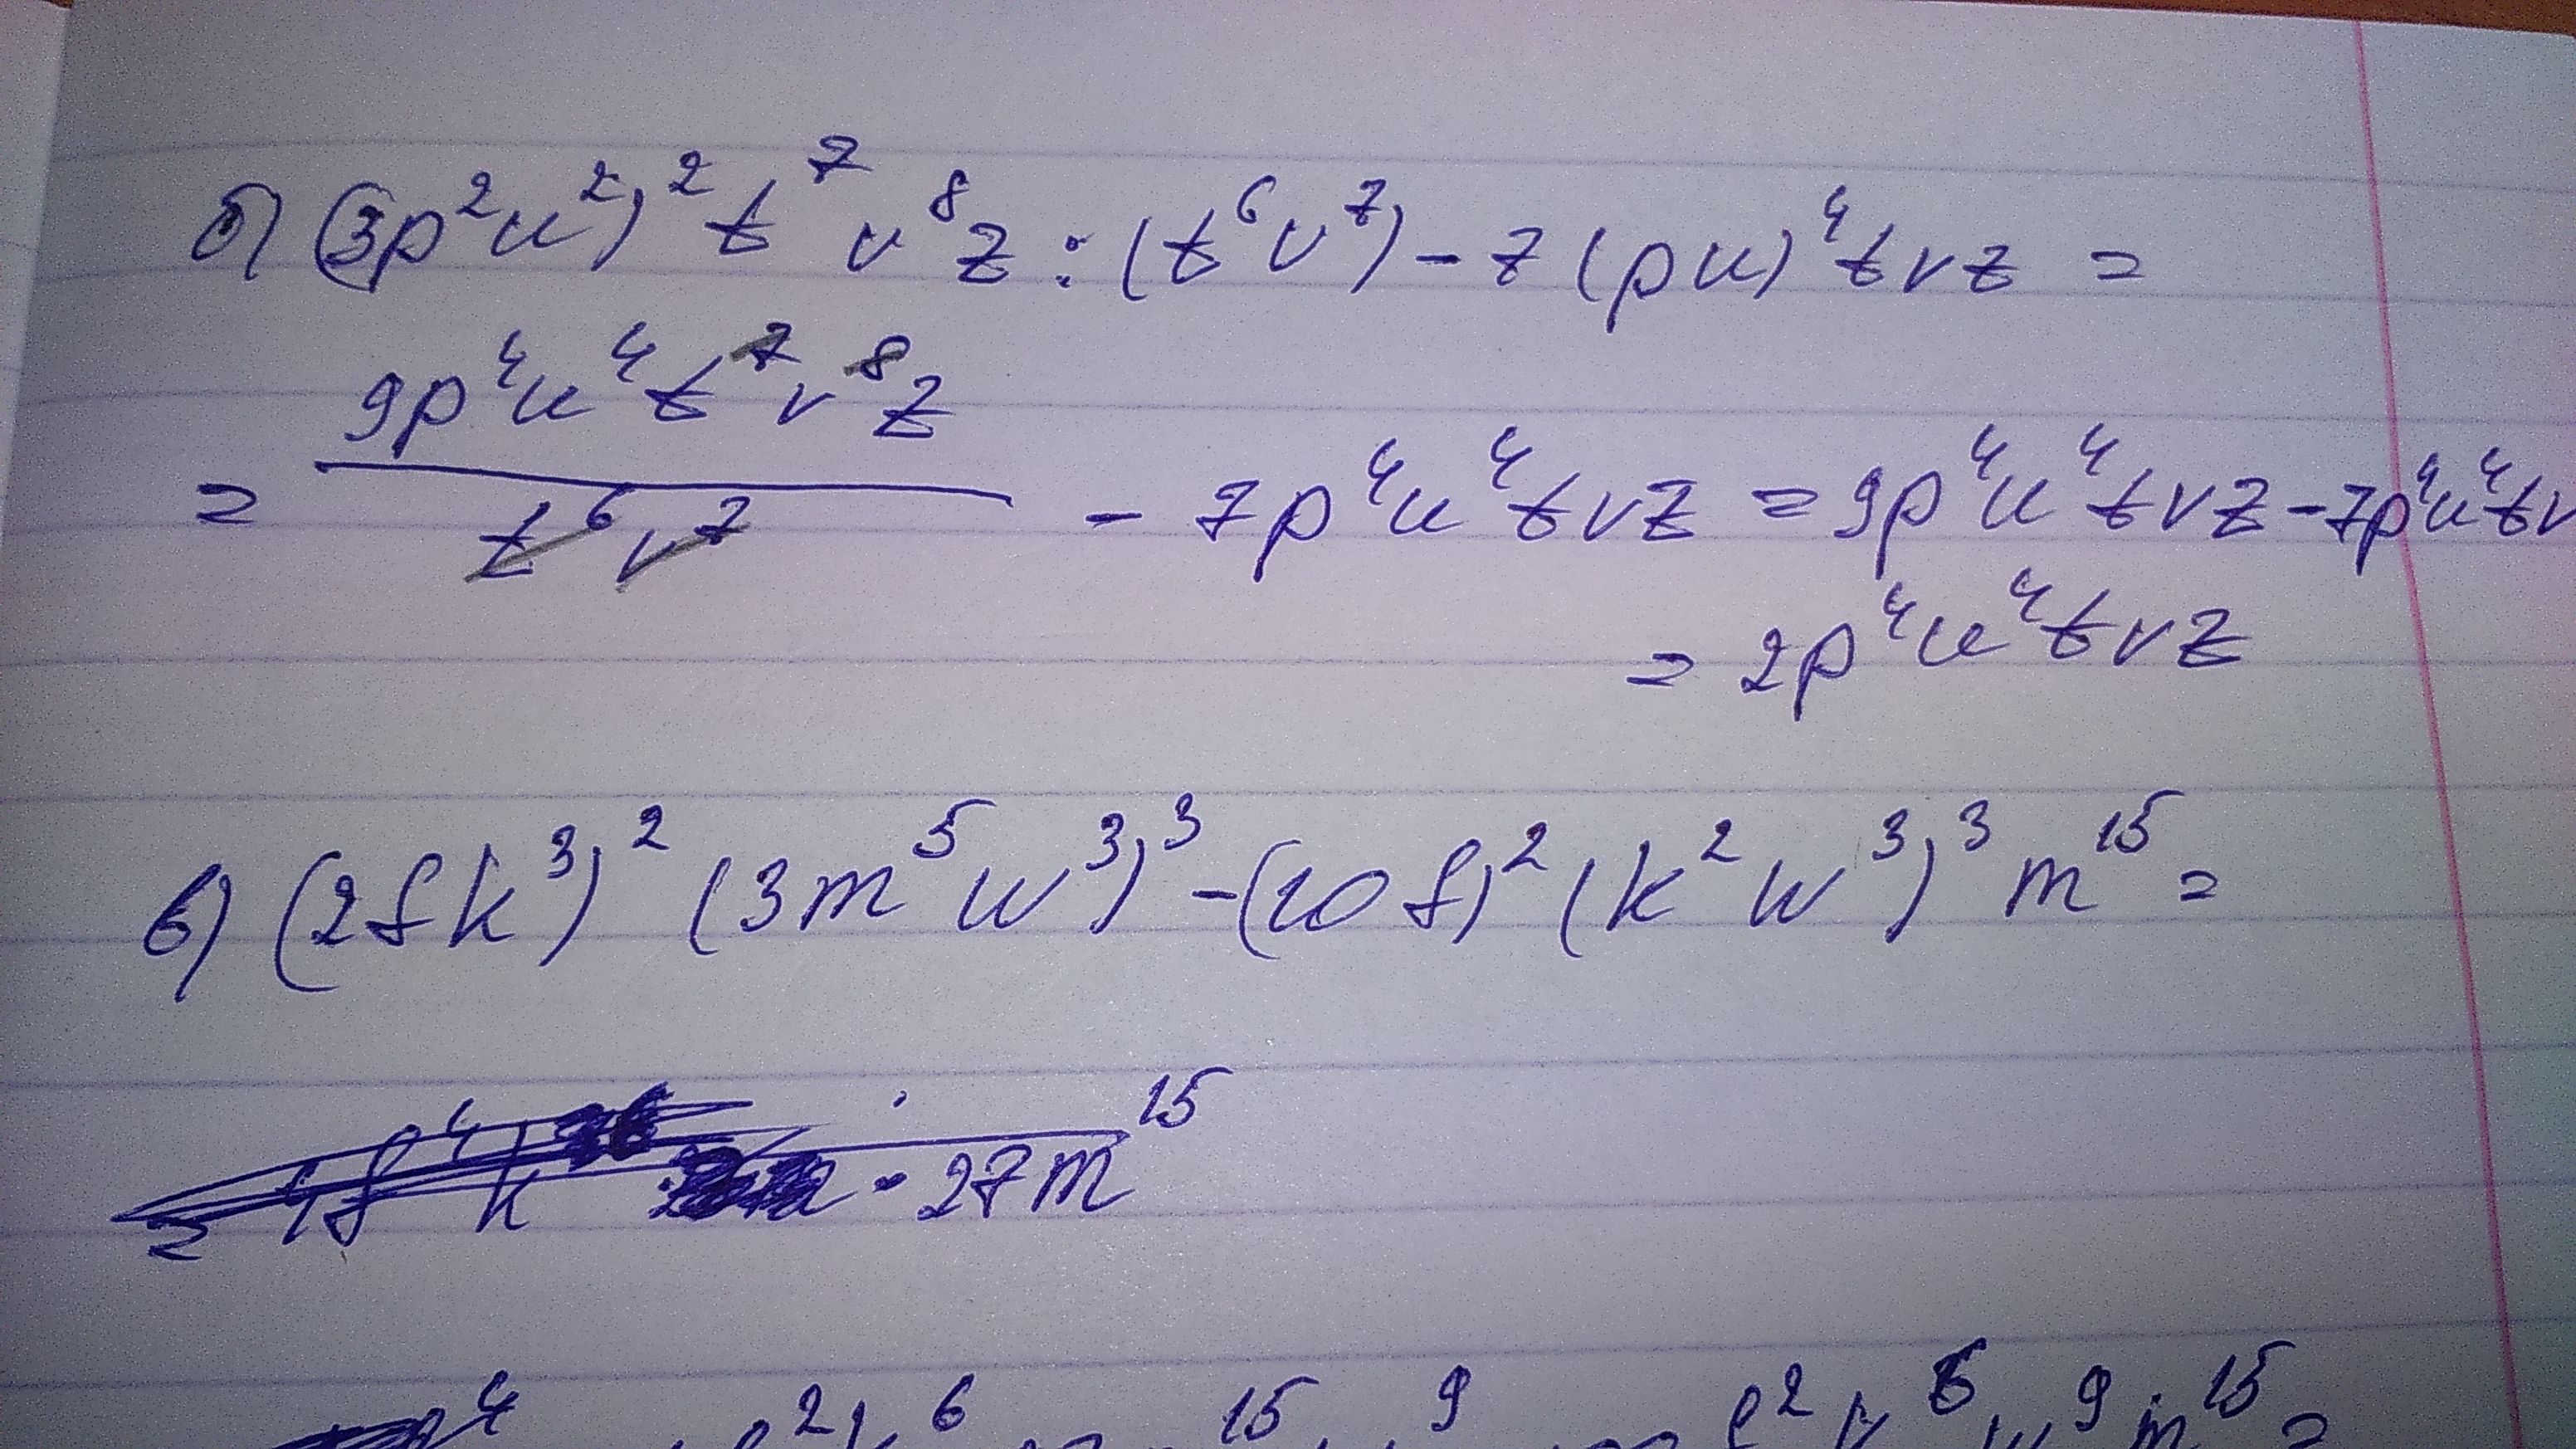 б) (3p²u²)² t⁷ v⁸z : (t⁶v⁷) - 7 (pu)⁴tvz =
= 9p⁴u⁴t⁷v⁸z / t⁶v⁷ - 7p⁴u⁴tvz = 9p⁴u⁴tvz - 7p⁴u⁴tv
= 2p⁴u⁴tvz
в) (2fk³)² (3m⁵w³)³ - (10f)² (k²w³)³ m¹⁵ =
= 4f⁴k · 27m¹⁵
f²k⁶ ¹⁵ ⁹ f²k⁶w⁹m¹⁵ =